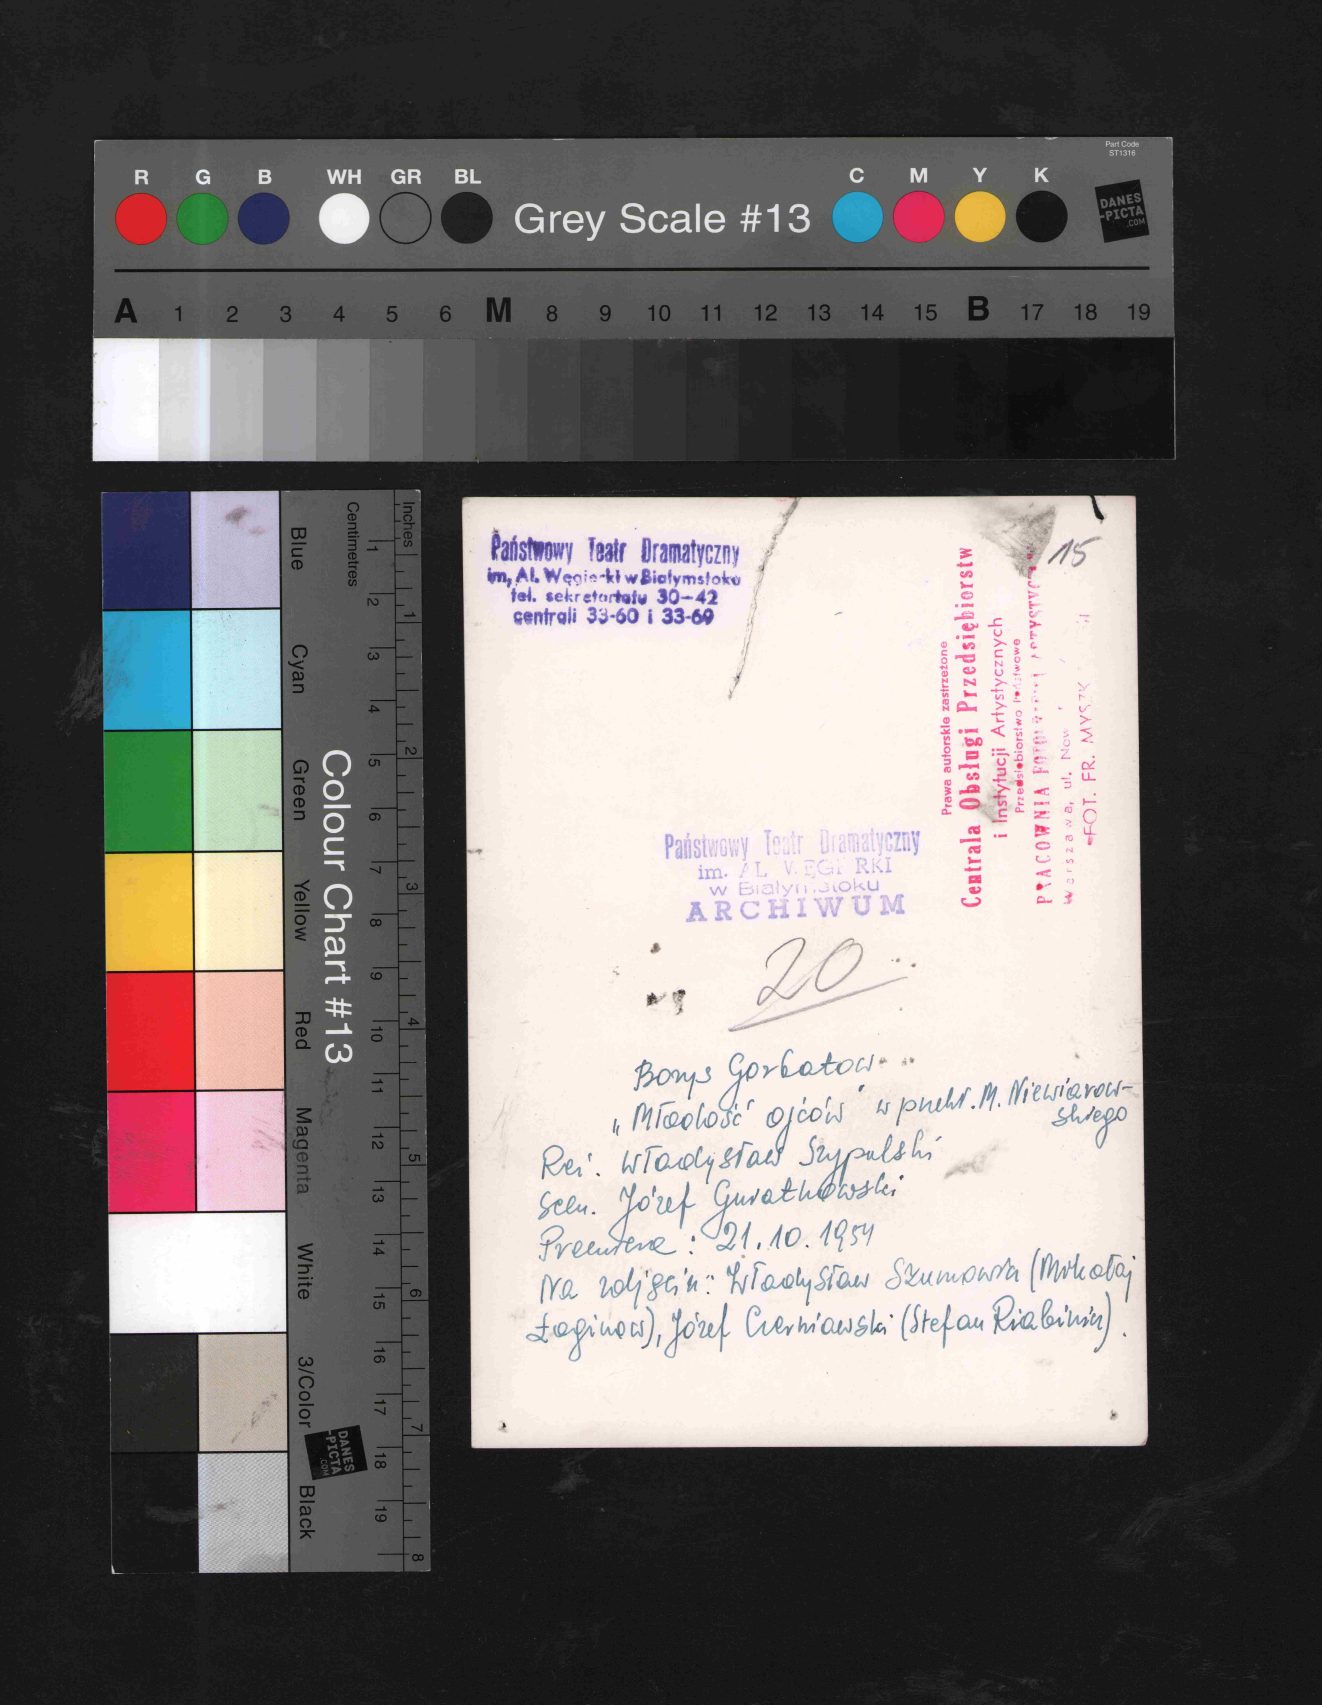 Part Code
ST1316
R G B WH GR BL Grey Scale #13 C M Y K
DANES
-PICTA
.COM
A 1 2 3 4 5 6 M 8 9 10 11 12 13 14 15 B 17 18 19
Colour Chart #13
Blue
Cyan
Green
Yellow
Red
Magenta
White
3/Color
Black
Centimetres
1 2 3 4 5 6 7 8 9 10 11 12 13 14 15 16 17 18 19
Inches
1 2 3 4 5 6 7 8
DANES
-PICTA
.COM
Państwowy Teatr Dramatyczny
im, Al. Węgierki w Białymstoku
tel. sekretariatu 30-42
centrali 33-60 i 33-69
15
Prawa autorskie zastrzeżone
Centrala Obsługi Przedsiębiorstw
i Instytucji Artystycznych
Przedsiębiorstwo Państwowe
PRACOWNIA
Warszawa, ul. Now
FOT. FR. MYSZK
Państwowy Teatr Dramatyczny
im. AL WĘGIERKI
w Białymstoku
ARCHIWUM
20
Borys Gorbatow
„Młodość ojców" w przekł. M. Niewiarow-
skiego
Reż. Władysław Szypulski
Scen. Józef Gurathowski
Premiera: 21.10.1954
Na zdjęciu: Władysław Szumowski (Mikołaj
Łoginow), Józef Czerniawski (Stefan Riabinin).